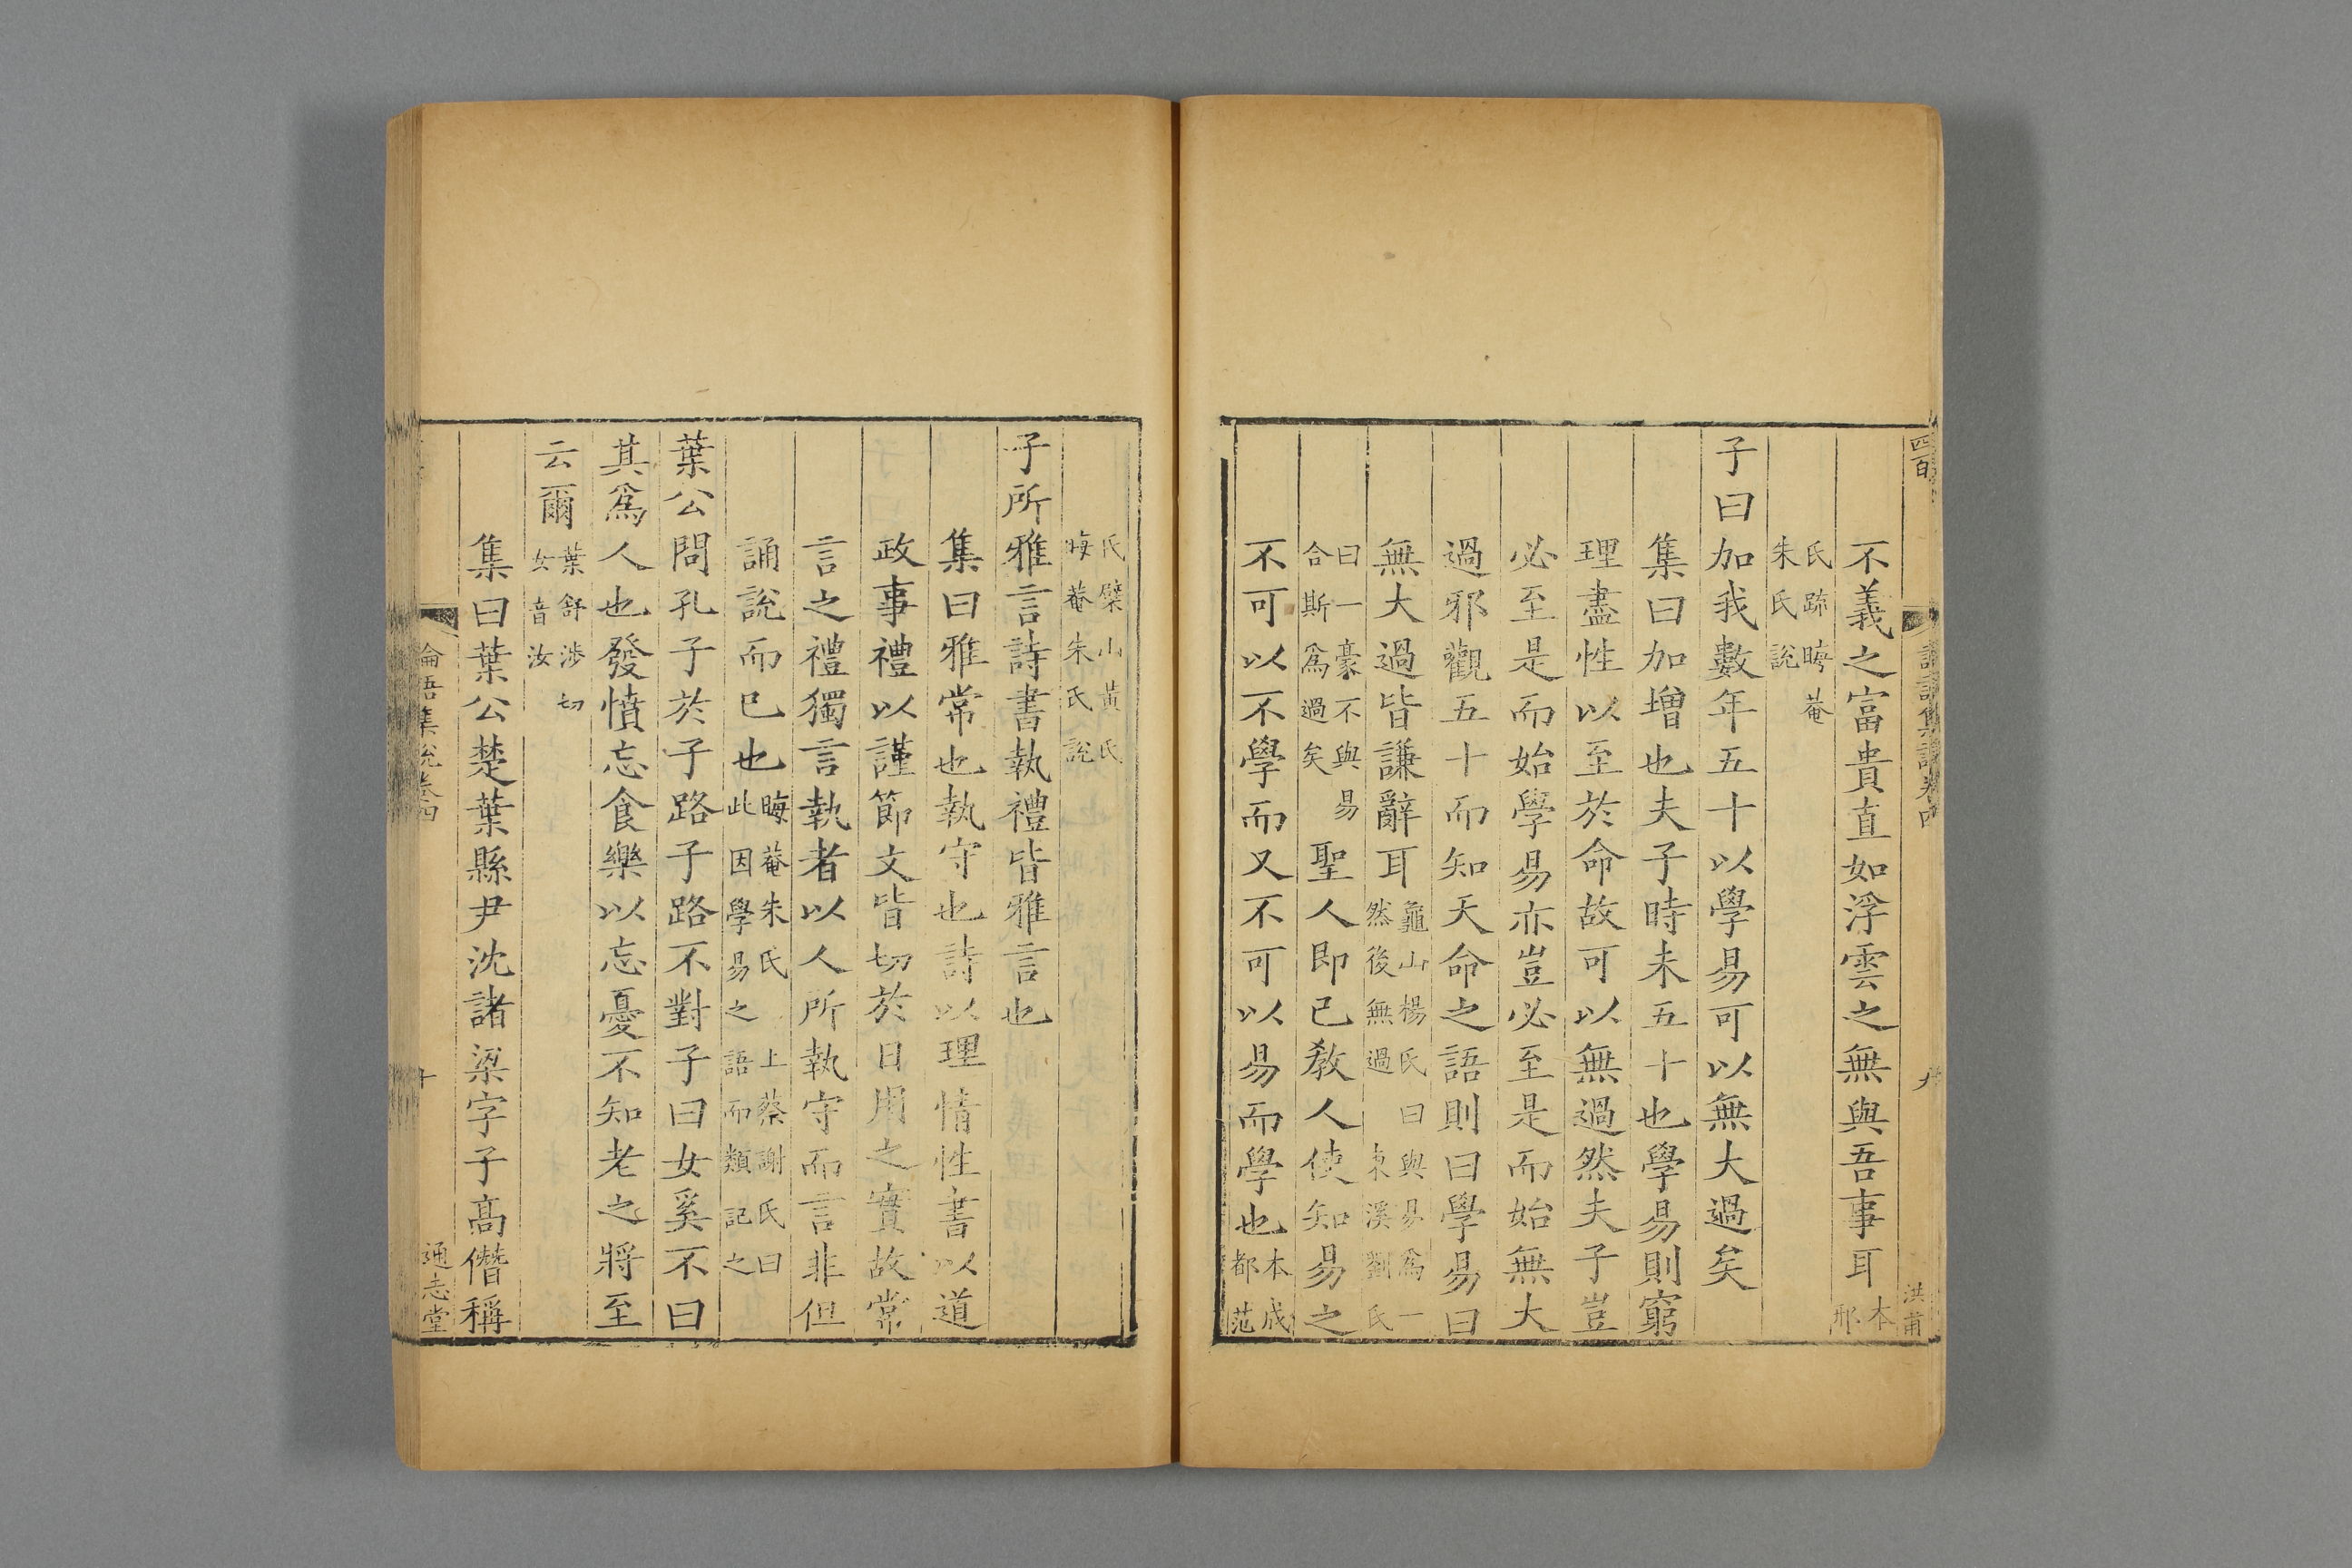 不義之富貴直如浮雲之無與吾事耳本邢
氏䟽晦菴朱氏說
子曰加我數年五十以學易可以無大過矣
集曰加增也夫子時未五十也學易則窮
理盡性以至於命故可以無過然夫子豈
必至是而始學易亦豈必至是而始無大
過邪觀五十而知天命之語則曰學易曰
無大過皆謙辭耳龜山楊氏曰與易爲一然後無過東溪劉氏
曰一豪不與易合斯爲過矣聖人即已教人使知易之
不可以不學而又不可以易而學也本成都范
氏檗山黃氏晦菴朱氏說
子所雅言詩書執禮皆雅言也
集曰雅常也執守也詩以理情性書以道
政事禮以謹節文皆切於日用之實故常
言之禮獨言執者以人所執守而言非但
誦說而已也晦菴朱氏 上蔡謝氏曰此因學易之語而類記之
葉公問孔子於子路子路不對子曰女奚不曰
其爲人也發憤忘食樂以忘憂不知老之將至
云爾葉舒涉切女音汝
集曰葉公楚葉縣尹沈諸梁字子高僭稱
論語集說卷四
十
通志堂
九
洪甫